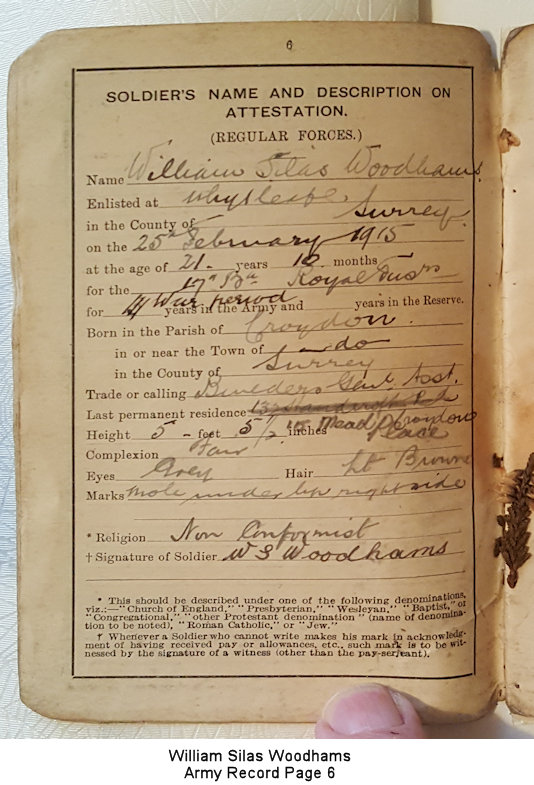 6
SOLDIER'S NAME AND DESCRIPTION ON
ATTESTATION.
(REGULAR FORCES.)
Name William Silas Woodhams
Enlisted at Whyteleafe
in the County of Surrey
on the 25th February 1915
at the age of 21. years 10 months
for the 17th Bn Royal Fusrs
for War period years in the Army and years in the Reserve.
Born in the Parish of Croydon.
in or near the Town of do
in the County of Surrey
Trade or calling Genl Asst.
Last permanent residence
Height 5 - feet 5 1/2 inches Mead Place Croydon
Complexion Fair
Eyes Grey Hair Lt Brown
Marks Mole under lip right side
* Religion Non Conformist
† Signature of Soldier W S Woodhams
* This should be described under one of the following denominations,
viz.:—"Church of England," "Presbyterian," "Wesleyan," "Baptist," or
"Congregational," "other Protestant denomination" (name of denomina-
tion to be noted), "Roman Catholic," or "Jew."
† Whenever a Soldier who cannot write makes his mark in acknowledg-
ment of having received pay or allowances, etc., such mark is to be wit-
nessed by the signature of a witness (other than the pay-serjeant).
William Silas Woodhams
Army Record Page 6